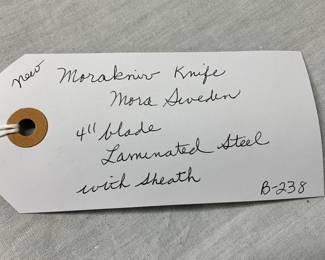 new Morakniv Knife
Mora Sweden
4" blade
Laminated Steel
with sheath
B-238